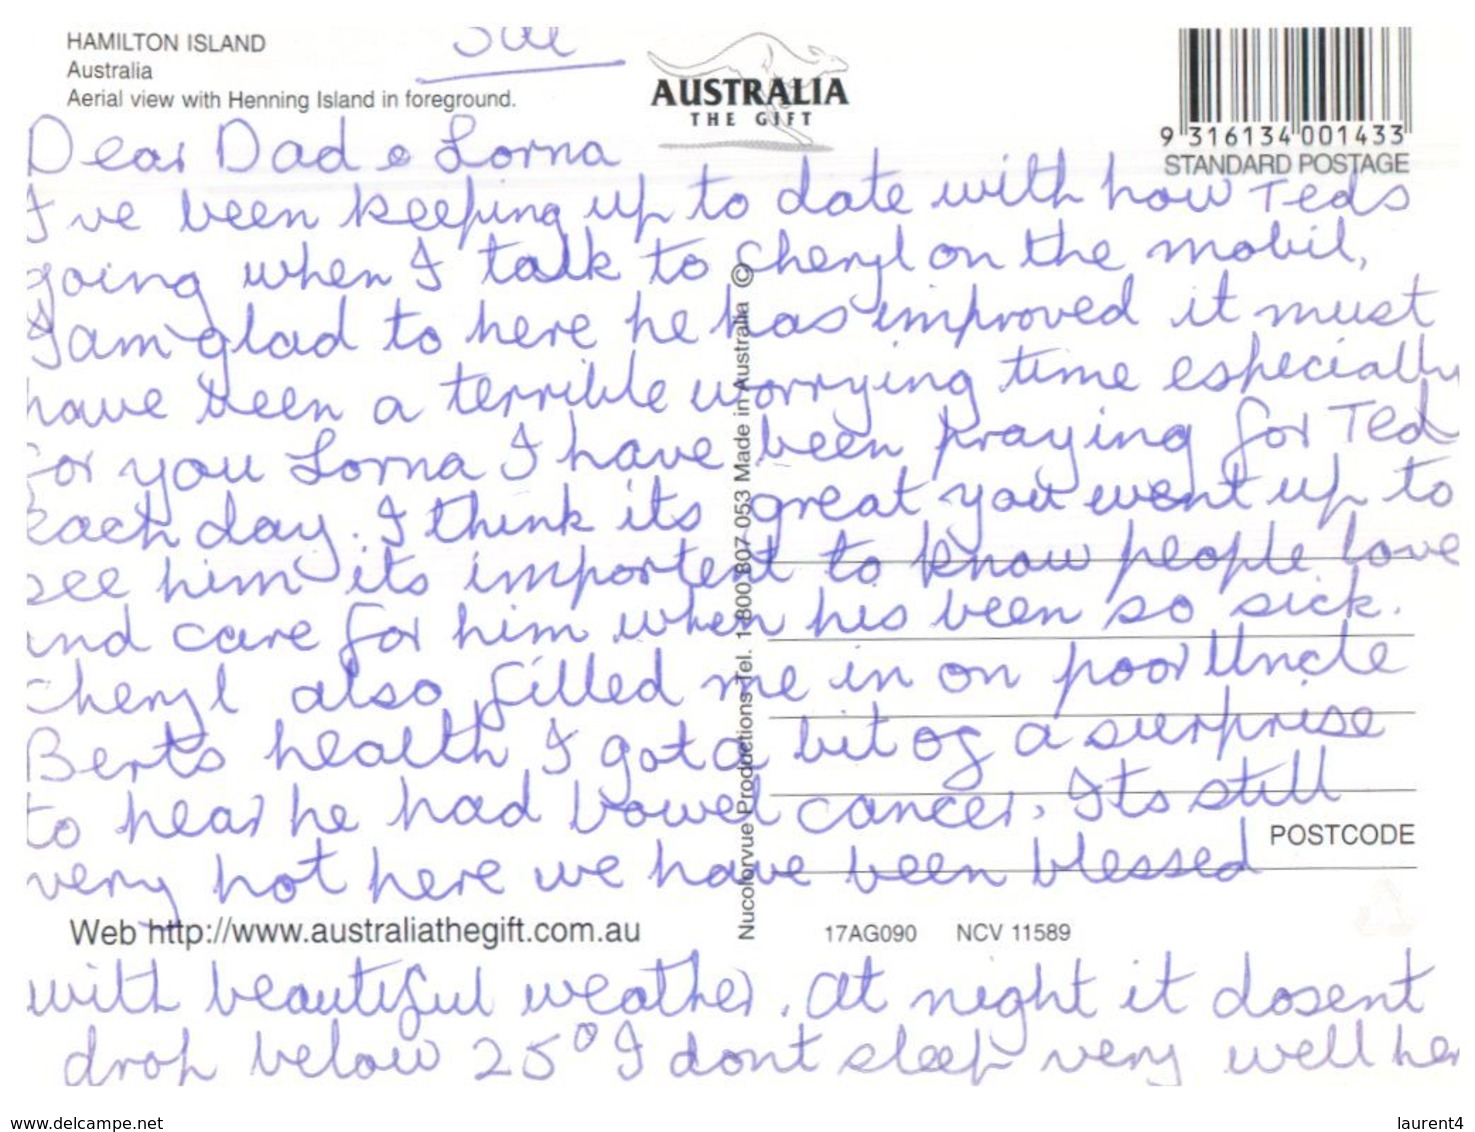 HAMILTON ISLAND
Australia
Aerial view with Henning Island in foreground.
Sue
AUSTRALIA
THE GIFT
9 316134 001433
STANDARD POSTAGE
Dear Dad & Lorna
I've been keeping up to date with how Teds
going when I talk to Cheryl on the mobil,
I am glad to here he has improved it must
have been a terrible worrying time especially
for you Lorna I have been praying for Ted
each day. I think its great you went up to
see him its importent to know people love
and care for him when his been so sick.
Cheryl also filled me in on poor Uncle
Berts health, I got a bit of a surprise
to hear he had bowel cancer. Its still
very hot here we have been blessed
POSTCODE
Nucolorvue Productions Tel. 1 800 807 053 Made in Australia ©
Web http://www.australiathegift.com.au
17AG090 NCV 11589
with beautiful weather. At night it dosent
drop below 25° I dont sleep very well her
www.delcampe.net
laurent4